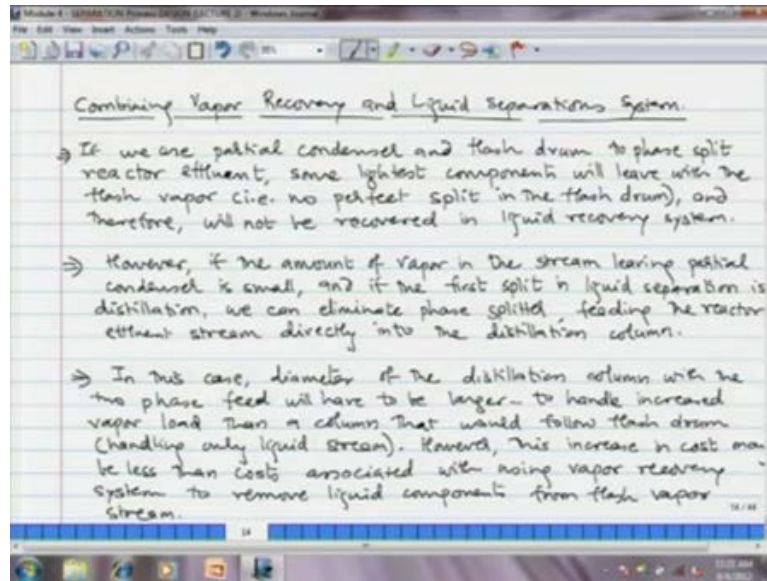 Module 4 - SEPARATION Process DESIGN (LECTURE 2) - Windows Journal
File Edit View Insert Actions Tools Help
Combining Vapor Recovery and Liquid Separations System.
⇒ If we use partial condenser and flash drum to phase split
reactor effluent, some lightest components will leave with the
flash vapor (i.e. no perfect split in the flash drum), and
therefore, will not be recovered in liquid recovery system.
⇒ However, if the amount of vapor in the stream leaving partial
condenser is small, and if the first split in liquid separation is
distillation, we can eliminate phase splitter, feeding the reactor
effluent stream directly into the distillation column.
⇒ In this case, diameter of the distillation column with the
two phase feed will have to be larger - to handle increased
vapor load than a column that would follow flash drum
(handling only liquid stream). However, this increase in cost may
be less than costs associated with using vapor recovery
system to remove liquid components from flash vapor
stream.
14